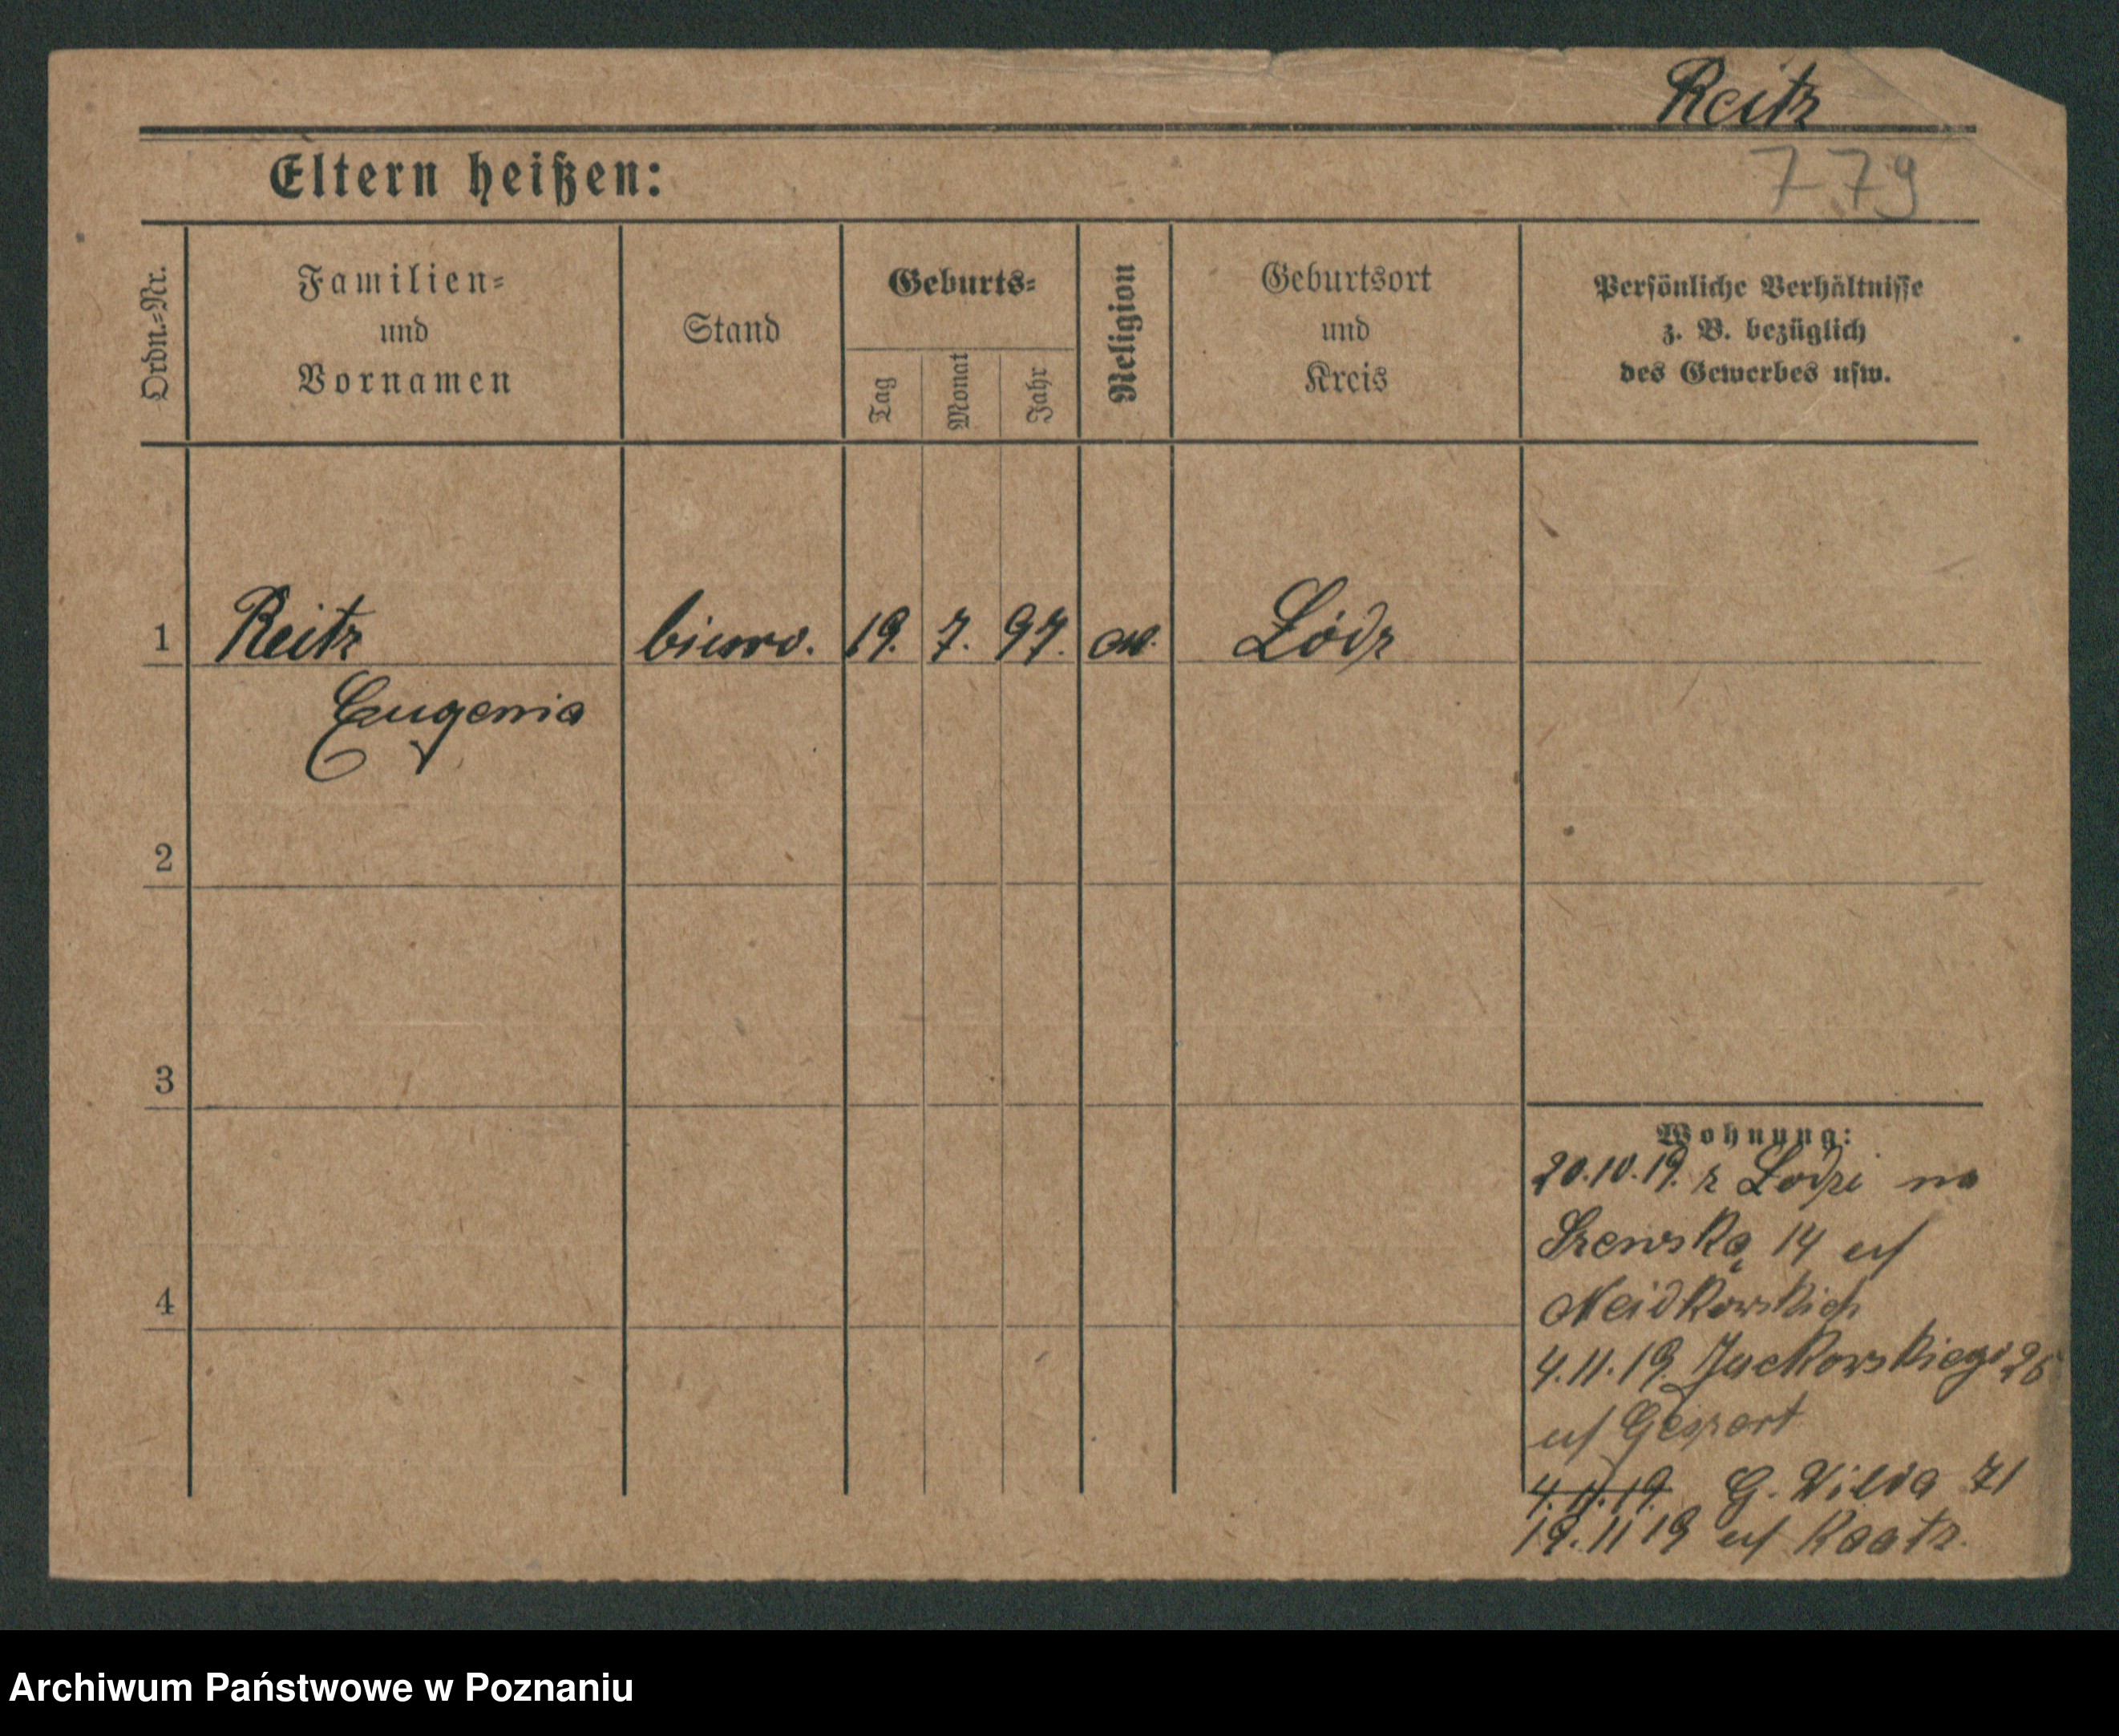 Reitz
Eltern heißen:
779
Ordn.-Nr.
Familien-
und
Vornamen
Stand
Geburts-
Tag
Monat
Jahr
Religion
Geburtsort
und
Kreis
Persönliche Verhältnisse
z. B. bezüglich
des Gewerbes usw.
1 Reitz biurow. 19. 7. 97. Łódz
Eugenia
2
3
4
Wohnung:
20.10.19. z Łodzi na
Szewską 14 u/
Neidkowskich
4.11.19. Jackowskiego 26
u/
4.11.19. G. Wilda 71
19.11 19 u/ Kaatz.
Archiwum Państwowe w Poznaniu